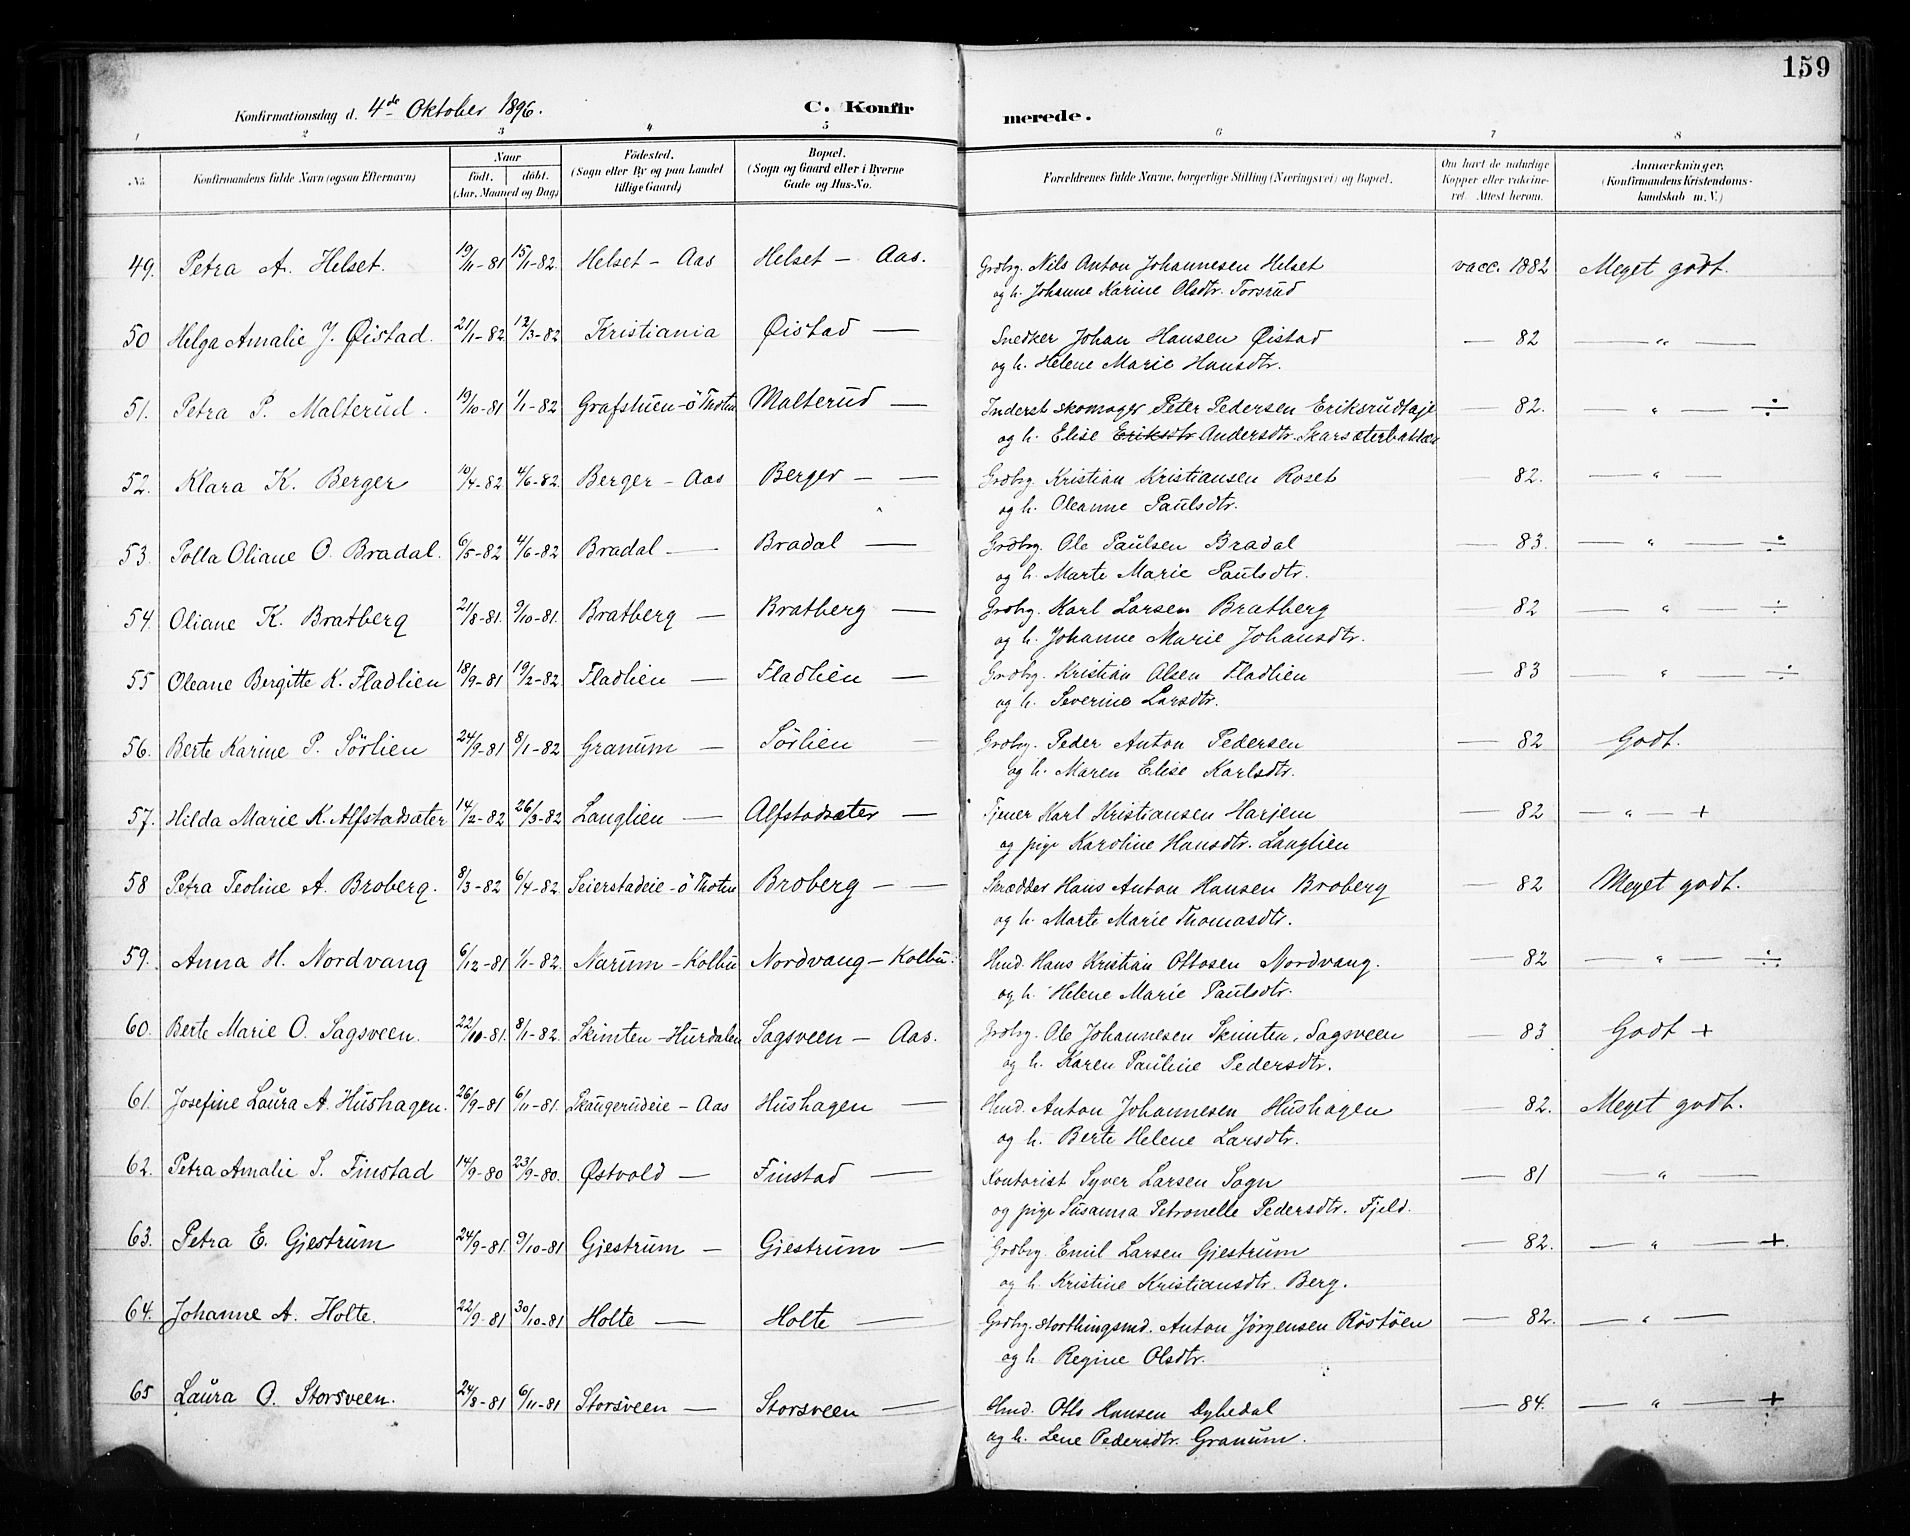 159
Konfirmationsdag d. 4de Oktober 1896. C. Konfirmerede.
1 2 3 4 5 6 7 8
No. Konfirmandens fulde Navn (ogsaa Efternavn) Naar født. døbt. (Aar, Maaned og Dag) Fødested. (Sogn eller By og paa Landet tillige Gaard) Bopæl. (Sogn og Gaard eller i Byerne Gade og Hus-No. Forældrenes fulde Navne, borgerlige Stilling (Næringsvei) og Bopæl. Om havt de naturlige Kopper eller vakcineret. Attest herom. Anmærkninger. (Konfirmandens Kristendomskundskab m. V.)
49. Petra A. Helset. 19/11-81 15/1-82. Helset - Aas Helset - Aas. Grdbrg. Nils Anton Johannesen Helset vacc. 1882 Meget godt.
og h. Johanne Karine Olsdtr. Torsrud
50 Helga Amalie J. Øistad. 21/1-82 12/3-82 Kristiania Øistad — Snedker Johan Hansen Øistad — 82 — " —
og h. Helene Marie Hansdtr.
51. Petra P. Malterud. 19/10-81 1/1-82 Grafstuen - ö Thoten Malterud — Inderst skomager Peter Pedersen Eriksrudeje — 82. — " — ÷
og h. Elise Eriksdtr Andersdtr. Skarsæterbakken
52. Klara K. Berger 10/4-82 4/6-82. Berger - Aas Berger - — Grdbrg. Kristian Kristiansen Roset — 82. — " —
og h. Oleanne Paulsdtr.
53. Polla Oliane O. Bradal. 6/5-82 4/6-82 Bradal — Bradal — Grdbrg. Ole Paulsen Bradal — 83. — " — ÷
og h. Marte Marie Paulsdtr.
54. Oliane K. Bratberg 21/8-81. 9/10-81. Bratberg — Bratberg — Grdbrg. Karl Larsen Bratberg — 82 — " — ÷
og h. Johanne Marie Johansdtr.
55 Oleane Bergitte K. Fladlien 18/9-81 19/2-82. Fladlien — Fladlien — Grdbrg. Kristian Olsen Fladlien — 83 — " — ÷
og h. Severine Larsdtr.
56. Berte Karine P. Sörlien 24/9-81 8/1-82 Granum — Sörlien — Grdbrg. Peder Anton Pedersen — 82 Godt.
og h. Maren Elise Karlsdtr.
57. Hilda Marie K. Alfstadsæter 14/2-82 26/3-82 Langlien — Alfstadsæter — Tjener Karl Kristiansen Harjem — 82 — " — +
og pige Karoline Hansdtr. Langlien
58 Petra Teoline A. Broberg. 8/3-82 6/4-82 Seierstadeie - ö Thoten Broberg - — Skrædder Hans Anton Hansen Broberg — 82 Meget godt.
og h. Marte Marie Thomasdtr.
59. Anna H. Nordvang 6/12-81 1/1-82. Narum - Kolbu Nordvang - Kolbu. Hmd. Hans Kristian Ottosen Nordvang. — 82 — " — ÷
og h. Helene Marie Paulsdtr.
60. Berte Marie O. Sagsveen. 22/10-81. 8/1-82. Skimten - Hurdalen Sagsveen - Aas. Grdbrg. Ole Johannesen Skimten, Sagsveen — 83 Godt +
og h. Karen Pauline Pedersdtr.
61. Josefine Laura A. Hushagen. 26/9-81 6/11-81. Skaugerudeie - Aas Hushagen — Hmd. Anton Johannesen Hushagen — 82. Meget godt.
og h. Berte Helene Larsdtr.
62. Petra Amalie S. Finstad 14/9-80 23/9-80. Østvold — Finstad — Kontorist Syver Larsen Sogn — 81 — " —
og pige Susanna Petronelle Pedersdtr. Fjeld.
63. Petra E. Gjestrum 24/9-81. 9/10-81 Gjestrum — Gjestrum — Grdbrg. Emil Larsen Gjestrum — 82. — " — +.
og h. Kristine Kristiansdtr. Berg.
64. Johanne A. Holte. 22/9-81 30/10-81 Holte — Holte — Grdbrg. storthingsmd. Anton Jörgensen Röstöen — 82. — " —
og h. Regine Olsdtr.
65 Laura O. Storsveen. 24/8-81 6/11-81 Storsveen — Storsveen — Hmd. Otto Hansen Dyhedal — 84. — " — +
og h. Lene Pedersdtr. Granum.